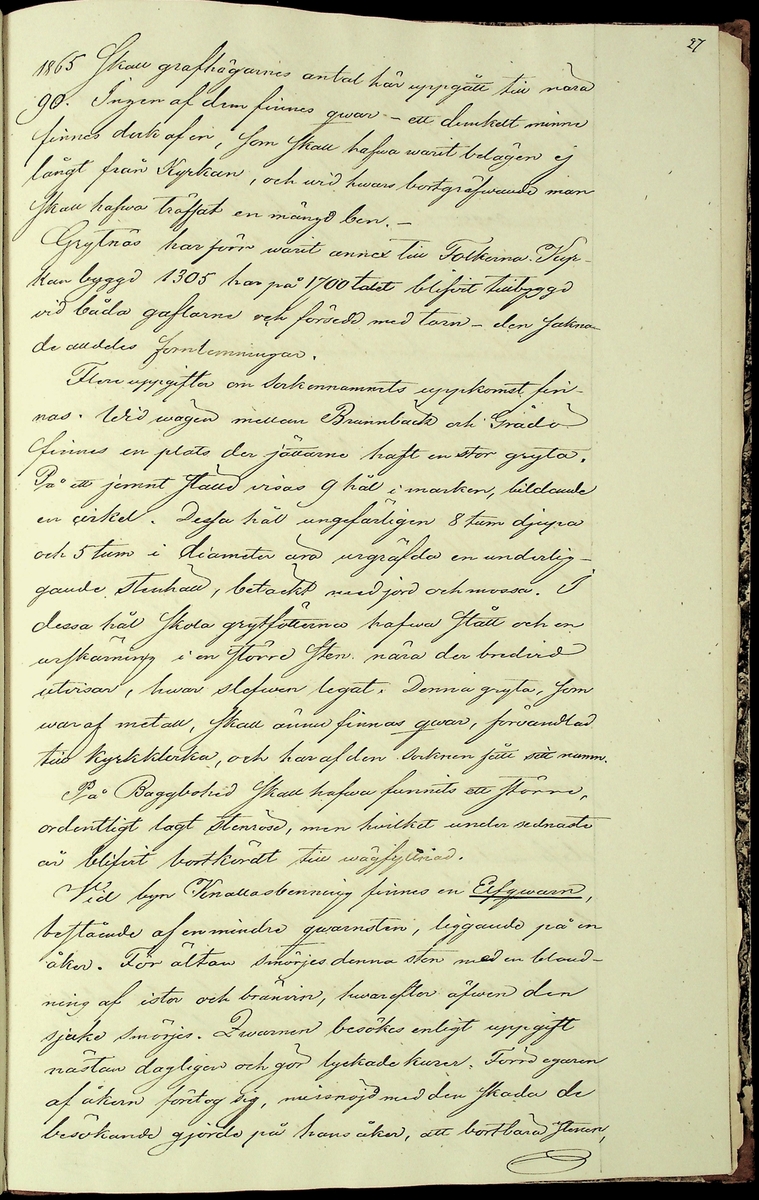 27
1865 Skall grafhögarnes antal här uppgått till nära
90. Ingen af dem finnes qwar – ett dunkelt minne
finnes dock af en, som skall hafwa warit belägen ej
långt från Kyrkan, och wid hwars bortgräfwande man
skall hafwa träffat en mängd ben. –
Grytnäs har förr warit annex till Folkerna. Kyr-
kan byggd 1305 har på 1700 talet blifvit tillbyggd
vid båda gaflarne och försedd med torn – den sakna-
de alldeles fornlemningar.
Flere uppgifter om sockennamnets uppkomst fin-
nas. Wid wägen mellan Brunnbäck och Grådö
finnes en plats der jättarne haft en stor gryta.
På ett jemnt ställe visas 9 hål i marken, bildande
en cirkel. Dessa hål ungefärligen 8 tum djupa
och 5 tum i diameter äro urgräfda en underlig-
gande stenhäll, betäckt med jord och mossa. I
dessa hål skola grytfötterna hafwa stått och en
urskärning i en större sten nära der bredvid
utvisar, hwar slefwen legat. Denna gryta, som
war af metall, skall ännu finnas qwar, förvandlad
till kyrkklocka, och har af den socknen fått sitt namn.
På Baggbohed skall hafwa funnits ett större,
ordentligt lagt stenröse, men hvilket under sednaste
år blifvit bortkördt till wägfyllnad.
Vid byn Knallasbenning finnes en Elfqwarn,
bestående af en mindre qwarnsten, liggande på en
åker. För ältan smörjes denna sten med en bland-
ning af ister och bränvin, hwarefter äfwen den
sjuke smörjes. Qwarnen besökes enligt uppgift
nästan dagligen och gör lyckade kurer. Förre egaren
af åkern företog sig, missnöjd med den skada de
besökande gjorde på hans åker, att bortbära stenen,